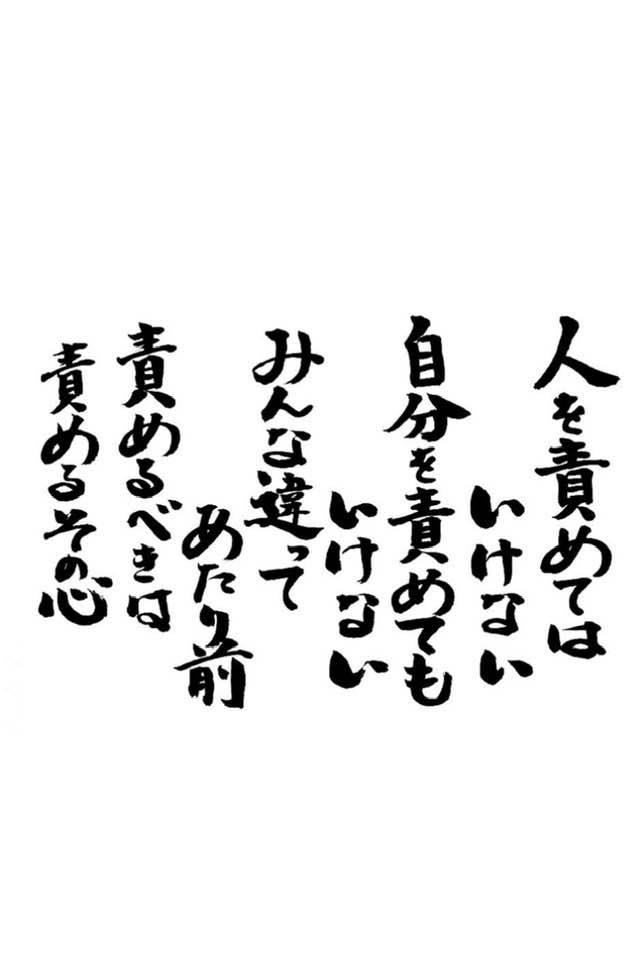 人を責めては
いけない
自分を責めても
いけない
みんな違って
あたり前
責めるべきは
責めるその心